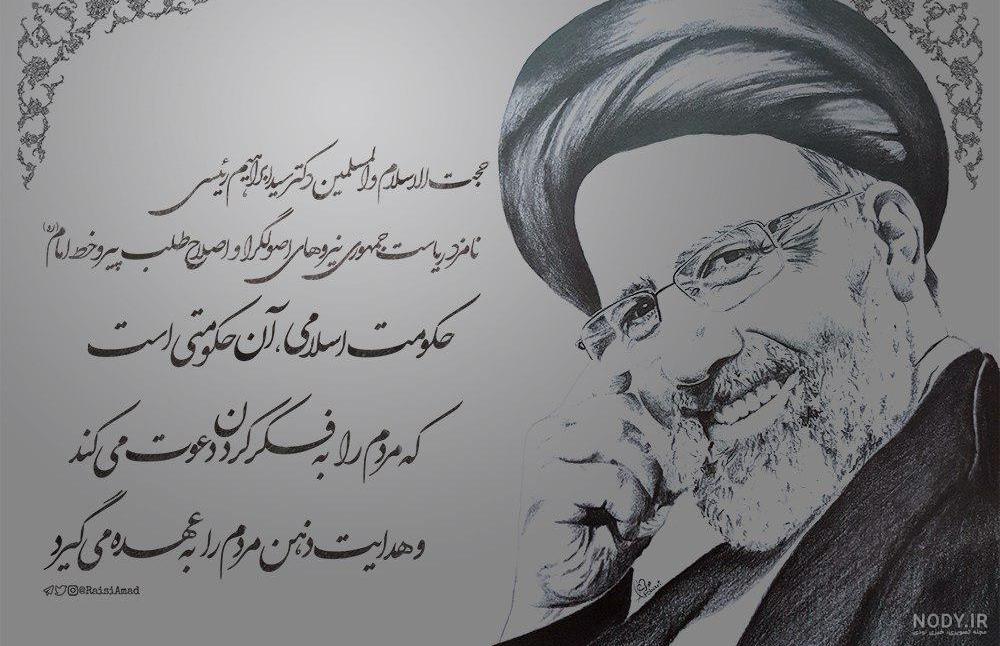 حجت الاسلام والمسلمین دکتر سید ابراهیم رئیسی
نامزد ریاست جمهوری نیروهای اصولگرا و اصلاح طلب پیرو خط امام(ره)
حکومت اسلامی، آن حکومتی است
که مردم را به فکر کردن دعوت می کند
و هدایت ذهن مردم را به عهده می گیرد
@RaisiAmad
NODY.IR
مجله تصویری، خبری نودی